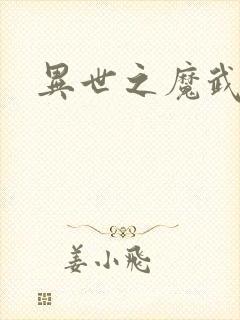 異世之魔武
姜小飛